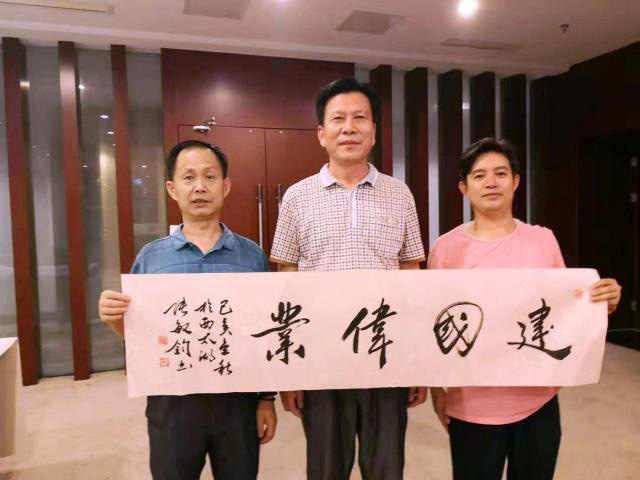 建國偉業
己亥立秋
於西太湖
張敏鈞書